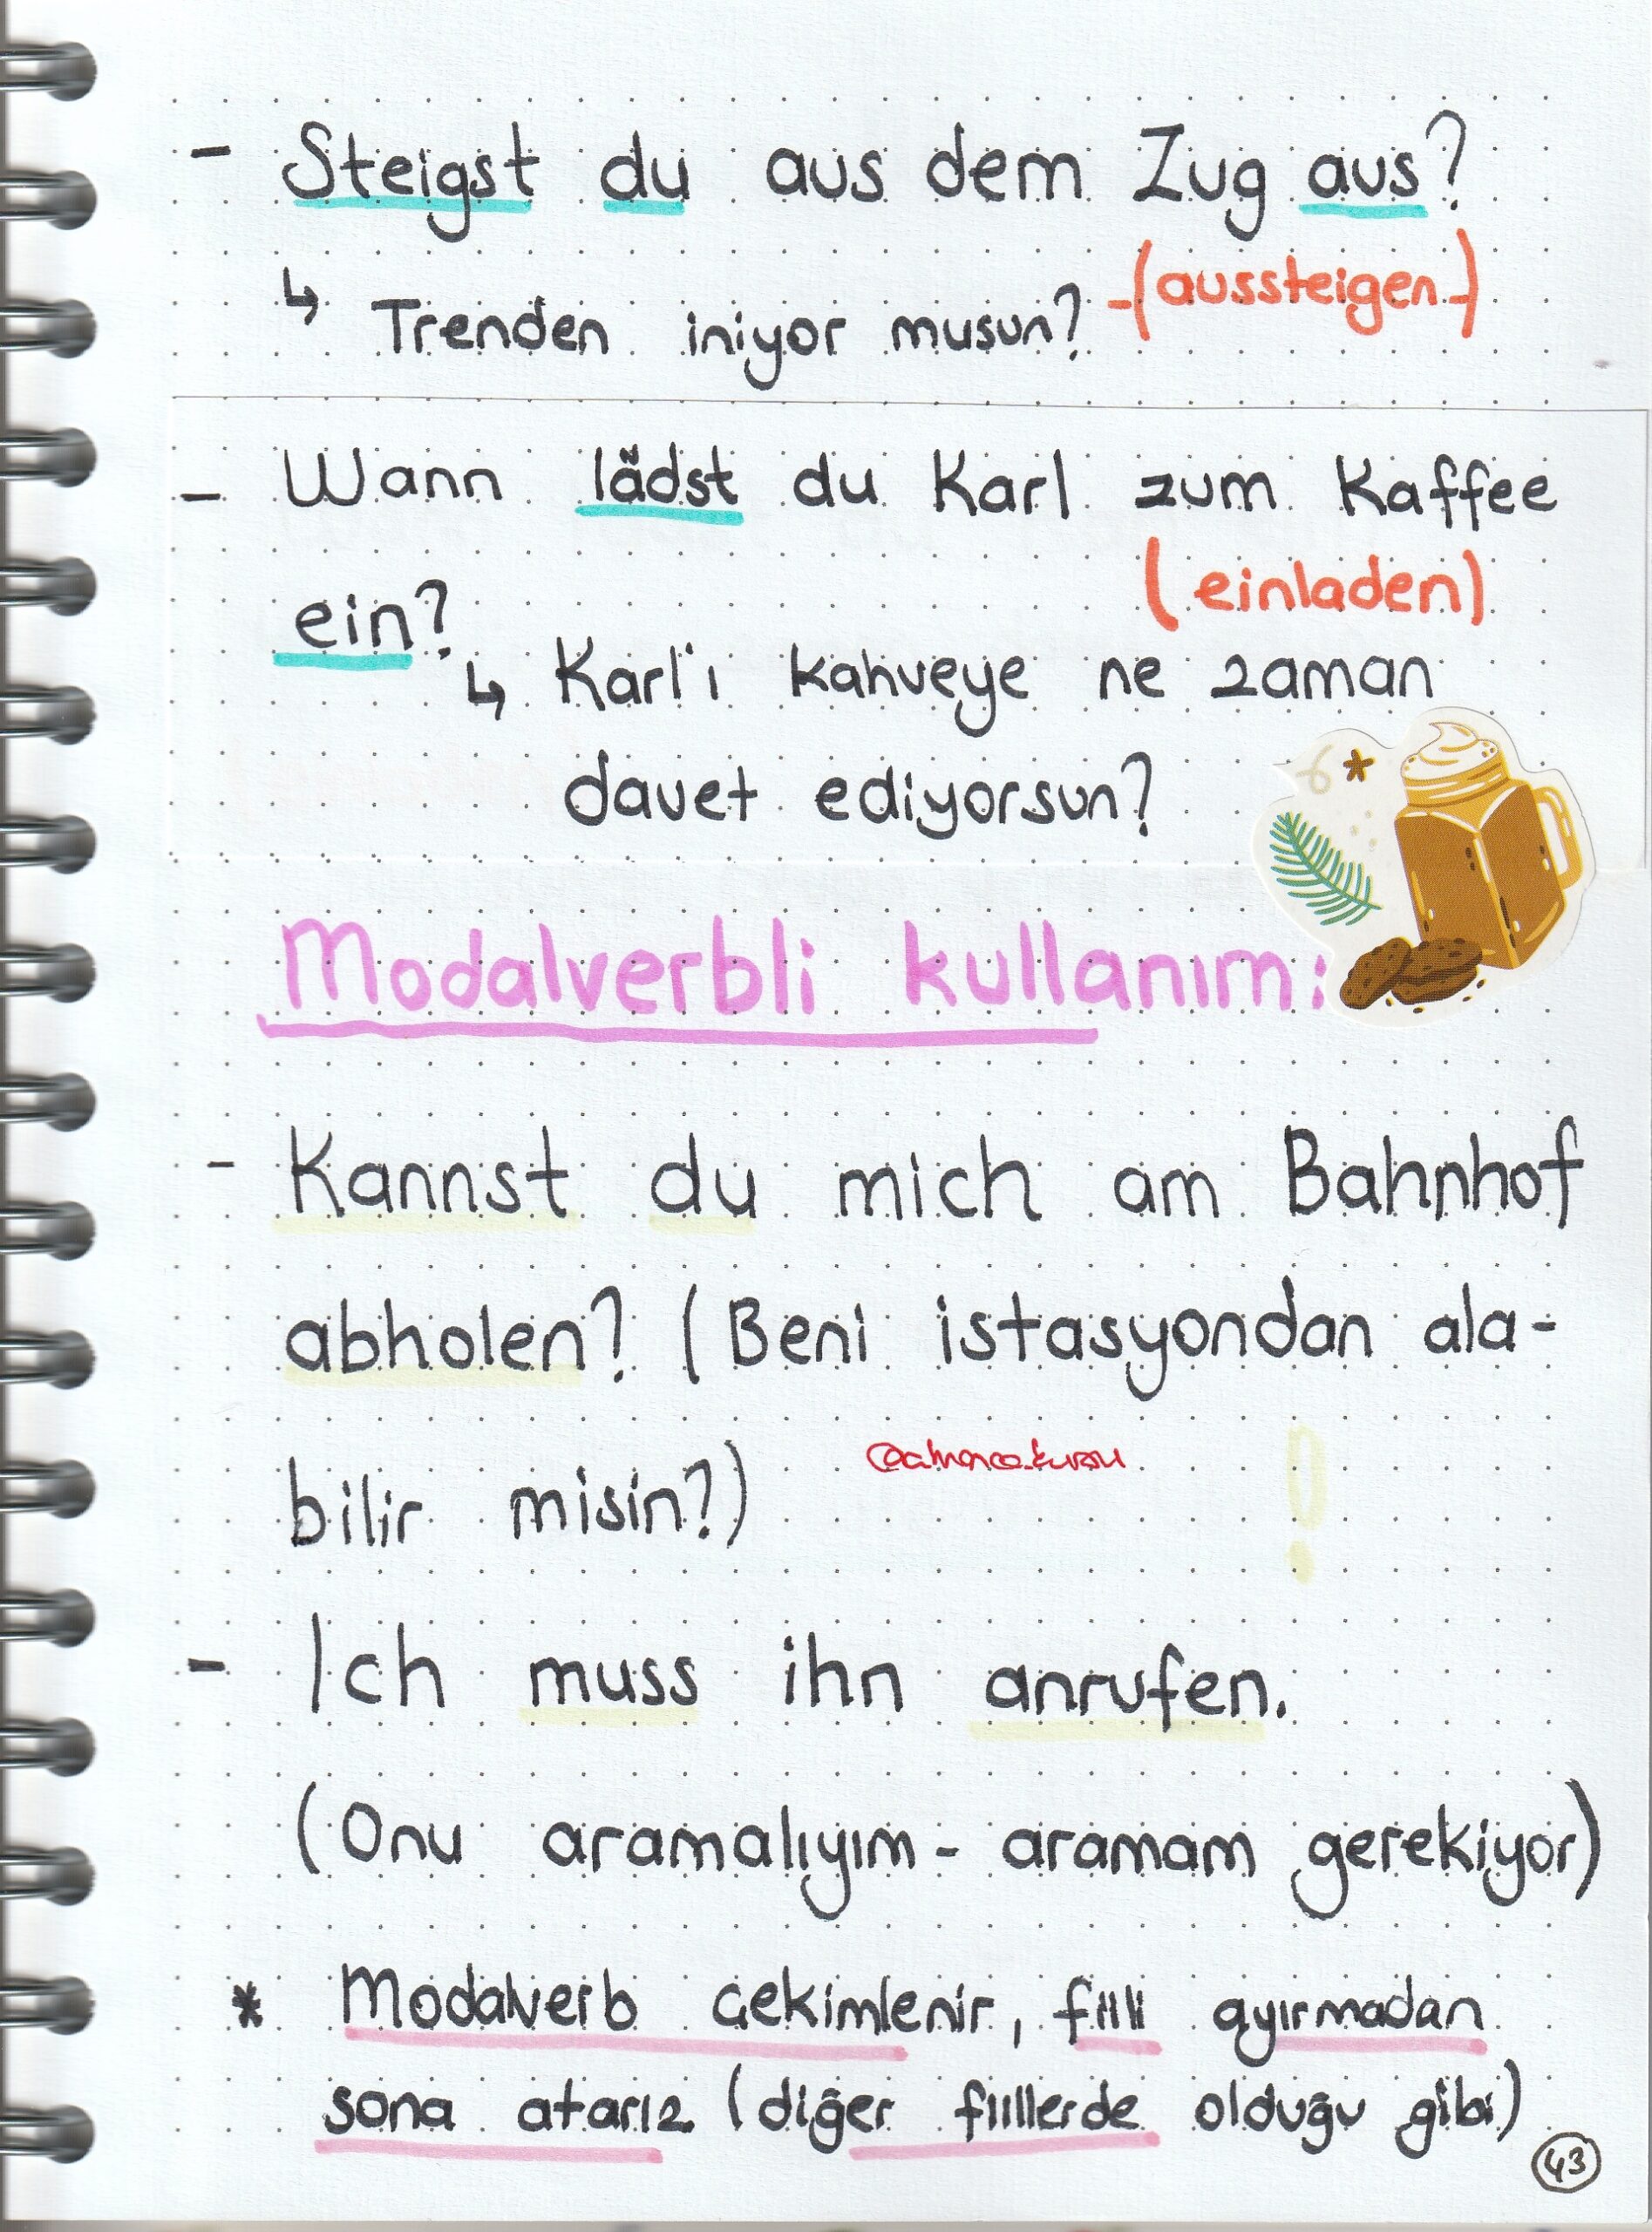 - Steigst du aus dem Zug aus?
↳ Trenden iniyor musun? -(aussteigen-)
- Wann lädst du Karl zum Kaffee
(einladen)
ein?
↳ Karl'ı kahveye ne zaman
davet ediyorsun?
Modalverbli kullanım:
- Kannst du mich am Bahnhof
abholen? (Beni istasyondan ala-
bilir misin?)
@almanca.kursu
!
- Ich muss ihn anrufen.
(Onu aramalıyım - aramam gerekiyor)
* Modalverb çekimlenir, fiili ayırmadan
sona atarız (diğer fiillerde olduğu gibi)
43